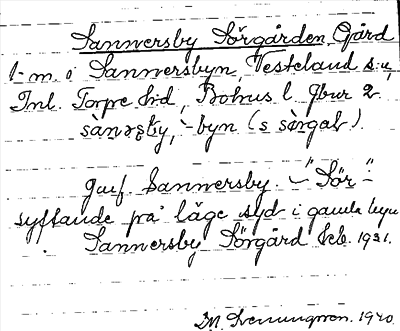 Sannersby Sörgården, Gård
1 m. i Sannersbyn, Vesteland s:n,
Inl. Torpe hd, Bohus l. Gbur 2
-byn (s sörgal).
Jmf. Sannersby. – "Sör" –
syftande på läge syd i gamla byn
Sannersby Sörgård Jrb. 1921.
1920.